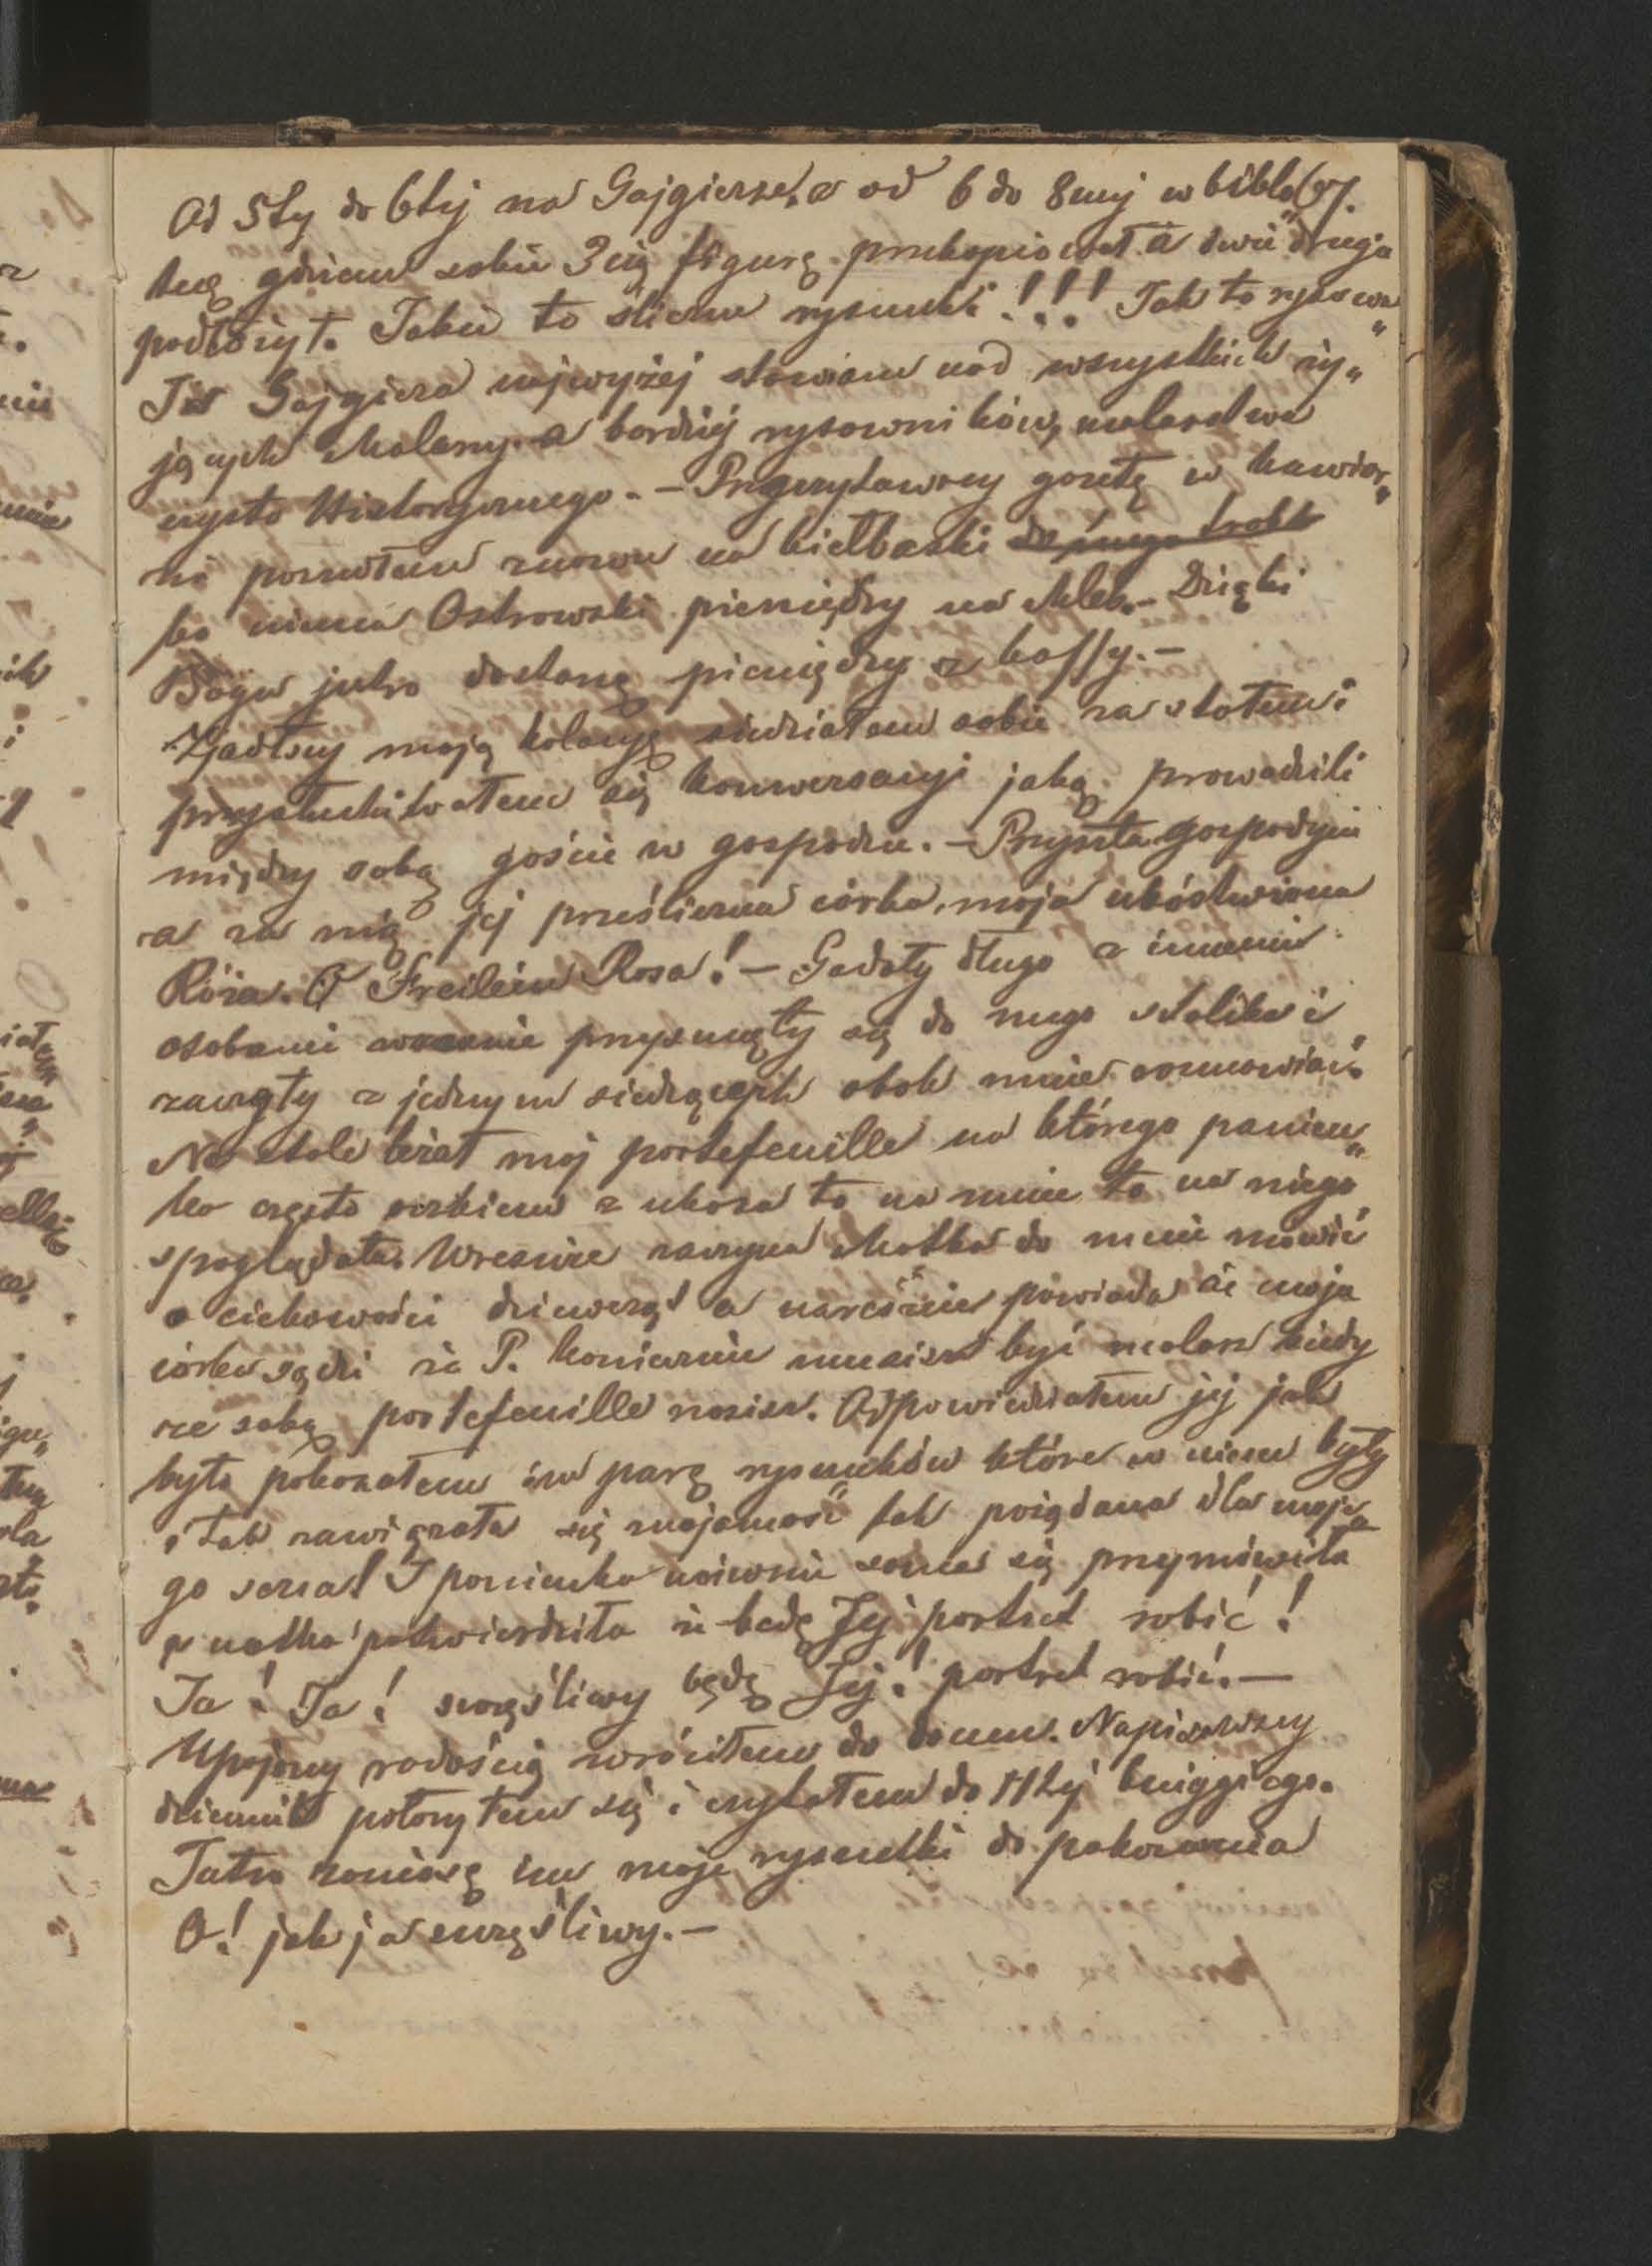 Od 5tej do 6tej na Gajgierze, a od 6 do 8mej w biblo 67.
tece gdziem sobie 3cią figurę przekopiował a dwie drugie
podłożył. Jakie to śliczne rysunki!!! Tak to rysowa„
Ja Gajgiera najwyżej stawiam nad wszystkich ży„
jących Malarzy a bardziéj rysowników, malarstwa
czysto Historycznego. – Przeczytawszy gazetę w kawiar„
ni poszedłem znowu na kiełbaski
bo niema Ostrowski pieniędzy na chleb. – Dzięki
Bogu jutro dostanę pieniędzy z kassy. –
Zjadłszy moją kolacyę siedziałem sobie za stołem i
przysłuchiwałem się konwersacyi jaką prowadzili
między sobą goście w gospodzie. – Przyszła gospodyni
a za nią jéj prześliczna córka, moja ubóstwiona
Róża. O Freilein Rosa! – Gadały długo z innemi
osobami wreszcie przysunęły się do mego stolika i
zaczęły z jednym siedzących obok mnie rozmawiać.
Na stole leżał mój portefeuille na którego panien„
ka często oczkiem z ukosa to na mnie to na niego
spoglądała. Wreszcie zaczyna Matka do mnie mówić
o ciekawości dziewcząt a nareszcie powiada że moja
córka sądzi że P. koniecznie musisz być malarz kiedy
ze sobą portefeuille nosisz. Odpowiedziałem jéj jak
było pokazałem im parę rysunków które w niem były
i tak zawiązała się znajomość tak pożądana dla moje„
go serca! I panienka naiwnie sama się przymówiła
a matka potwierdziła że będę Jéj portret robić!
Ja! Ja! szczęśliwy będę Jéj! portret robić. –
Upojony radością wróciłem do domu. Napisawszy
dziennik położyłem się i czytałem do 11tej
Jutro zaniosę im moje rysunki do pokazania
O! jak ja szczęśliwy. –